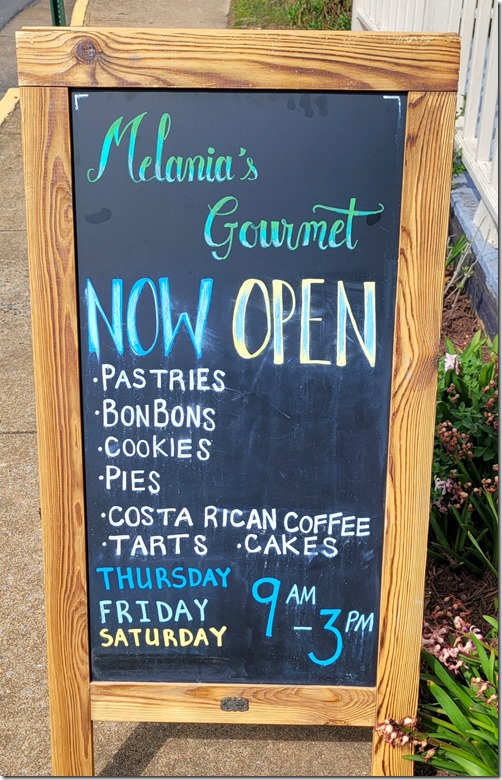 Melania's
Gourmet
NOW OPEN
·PASTRIES
·BONBONS
·COOKIES
·PIES
·COSTA RICAN COFFEE
·TARTS ·CAKES
THURSDAY
FRIDAY
SATURDAY
9 AM
–3 PM